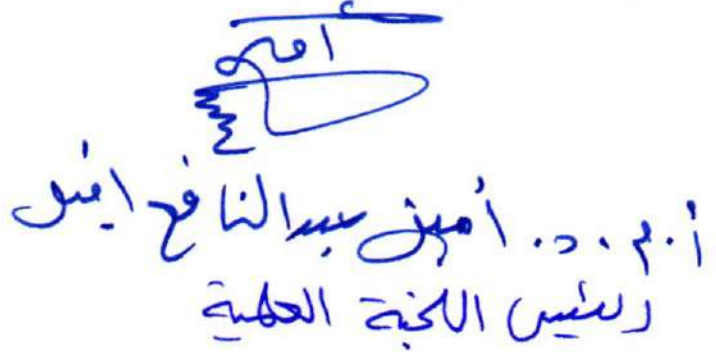 أ.م.د. أمين عبدالنافع امين
رئيس اللجنة العلمية